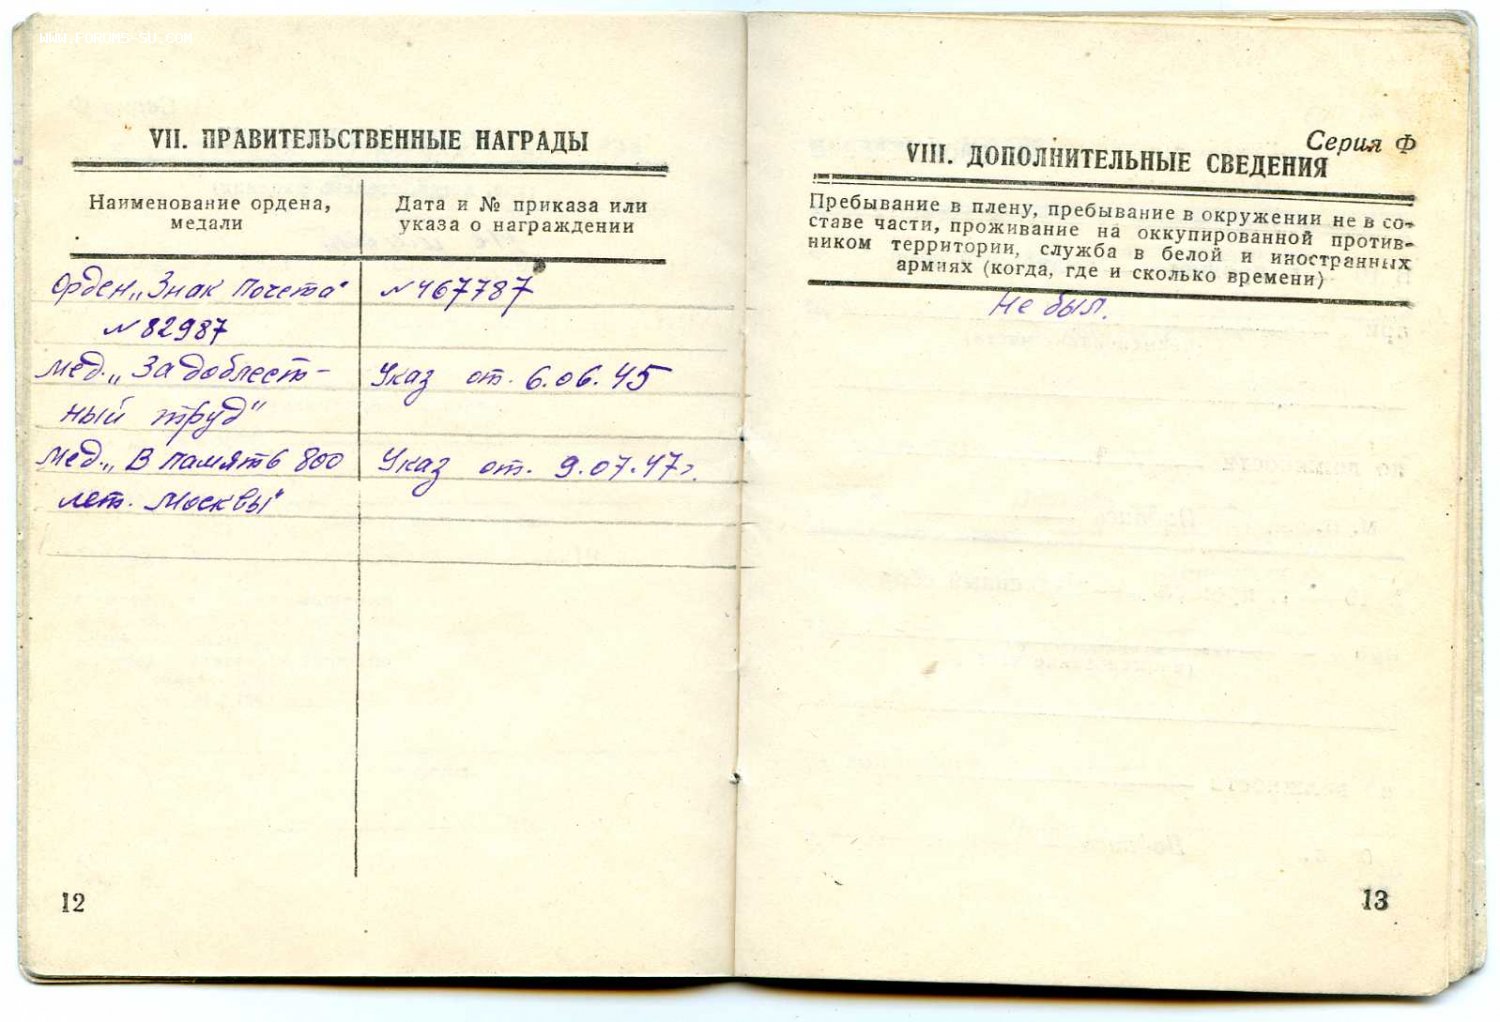 WWW.FORUM-SU.COM
VII. ПРАВИТЕЛЬСТВЕННЫЕ НАГРАДЫ
Наименование ордена,
медали
Дата и № приказа или
указа о награждении
Орден „Знак Почета"
№ 467787
№ 82987
Мед. „За доблест-
Указ от. 6.06.45
ный труд"
Мед. „В память 800
Указ от. 9.07.47 г.
лет. Москвы"
12
Серия Ф
VIII. ДОПОЛНИТЕЛЬНЫЕ СВЕДЕНИЯ
Пребывание в плену, пребывание в окружении не в со-
ставе части, проживание на оккупированной против-
ником территории, служба в белой и иностранных
армиях (когда, где и сколько времени)
Не был.
13